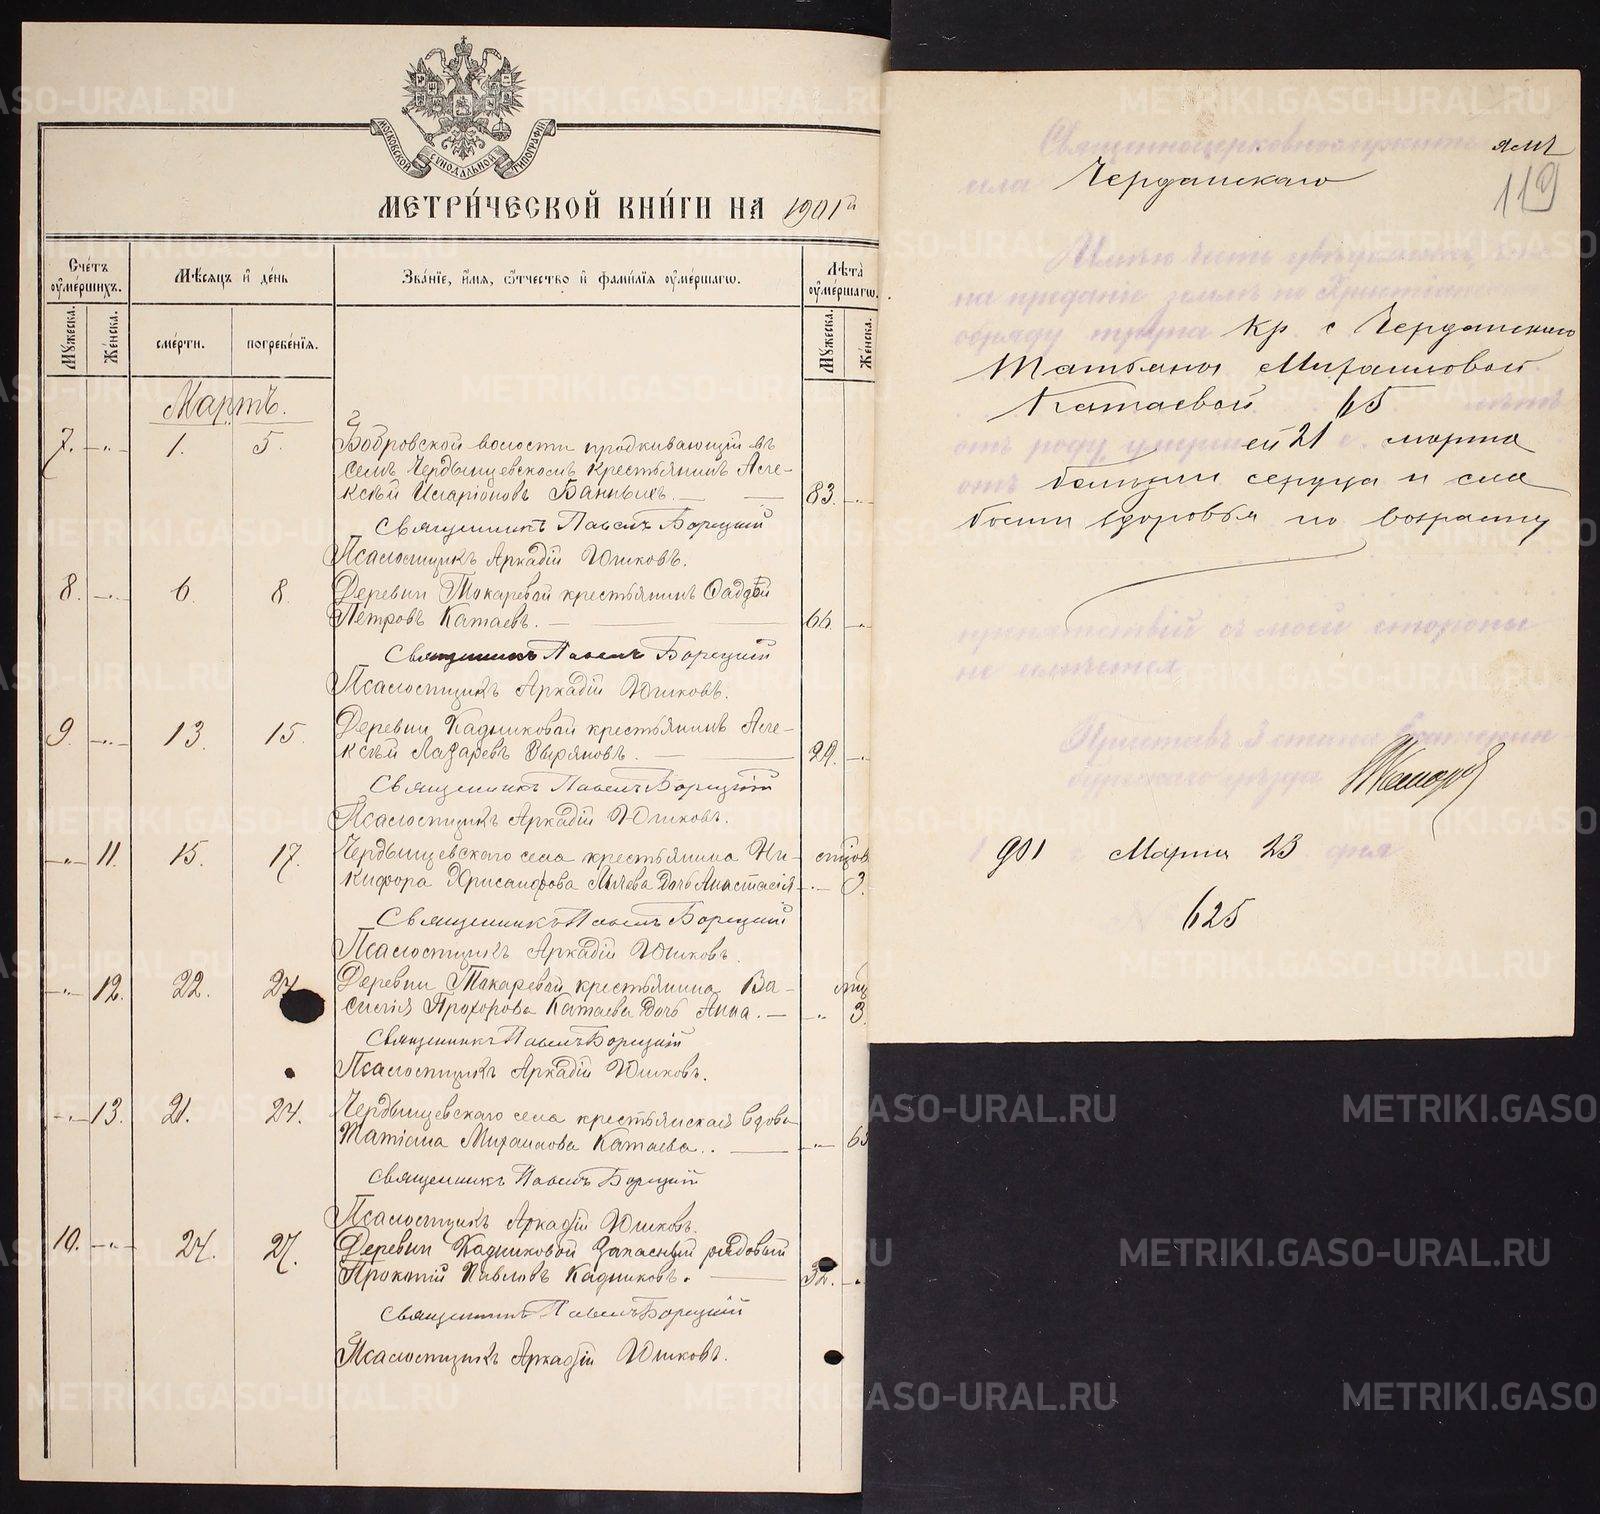 МОСКОВСКОЙ СѴНОДАЛЬНОЙ ТИПОГРАФІИ
МЕТРИ́ЧЕСКОЙ КНИ́ГИ НА 1901й
Сче́тъ ѹ҆ме́ршихъ.
Мѣ́сяцъ и҆ де́нь
Зва́нїе, и҆́мя, ѻ҆́тчество и҆ фами́лїя ѹ҆ме́ршагѡ.
Лѣ́та ѹ҆ме́ршагѡ.
Мꙋжеска.
Же́нска.
сме́рти.
погребе́нїя.
Мꙋжеска.
Же́нска.
Мартъ.
7. -„- 1. 5. Бобровской волости проживающій въ
селѣ Чердынцевскомъ крестьянинъ Але-
ксѣй Иларіоновъ Банныхъ. 83. -„-
Священникъ Павелъ Борецкій
Псаломщикъ Аркадій Юшковъ.
8. -„- 6. 8. Деревни Токаревой крестьянинъ Фаддѣй
Петровъ Катаевъ. 66. -„-
Священникъ Павелъ Борецкій
Псаломщикъ Аркадій Юшковъ.
9. -„- 13. 15. Деревни Кадниковой крестьянинъ Але-
ксѣй Лазаревъ Зыряновъ. 29. -„-
Священникъ Павелъ Борецкій
Псаломщикъ Аркадій Юшковъ.
-„- 11. 15. 17. Чердынцевскаго села крестьянина Ни-
кифора Хрисанфова дочь Анастасія -„- 3.
Священникъ Павелъ Борецкій
Псаломщикъ Аркадій Юшковъ.
-„- 12. 22. 24 Деревни Токаревой крестьянина Ва-
силія Прохорова Катаева дочь Анна. -„- 3.
Священникъ Павелъ Борецкій
Псаломщикъ Аркадій Юшковъ.
-„- 13. 21. 24. Чердынцевскаго села крестьянская вдова
Татіана Михаилова Катаева. -„- 65
Священникъ Павелъ Борецкій
Псаломщикъ Аркадій Юшковъ.
10. -„- 24. 27. Деревни Кадниковой запасный рядовый
Прокопій Павловъ Кадниковъ. 32. -„-
Священникъ Павелъ Борецкій
Псаломщикъ Аркадій Юшковъ.
Священноцерковнослужителямъ
села Черданскаго
119
Имѣю честь увѣдомить, что
на преданіе землѣ по Христіанскому
обряду трупа кр. с Черданскаго
Татьяны Михаиловой
Катаевой 65 лѣтъ
отъ роду умершей 21 с. марта
отъ болѣзни сердца и сла
бости здоровья по возрасту
препятствій съ моей стороны
не имѣется
Приставъ 3 стана Екатерин-
бургскаго уѣзда
1901 г. Марта 23 дня
625
METRIKI.GASO-URAL.RU